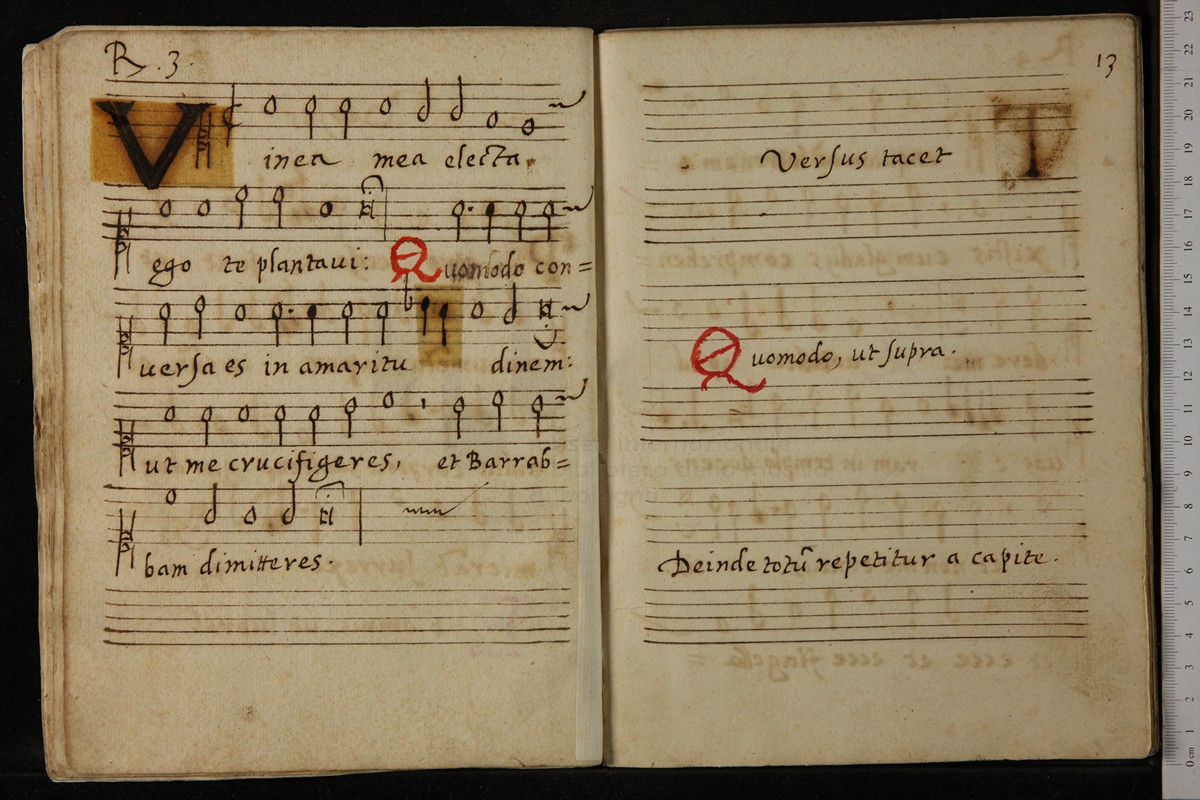 R. 3.
Vinea mea electa,
ego te plantavi: Quomodo con=
versa es in amaritu dinem:
ut me crucifigeres, et Barrab=
bam dimitteres.
13
Versus tacet
T
Quomodo, ut supra.
Deinde totũ repetitur a capite.
0 cm 1 2 3 4 5 6 7 8 9 10 11 12 13 14 15 16 17 18 19 20 21 22 23